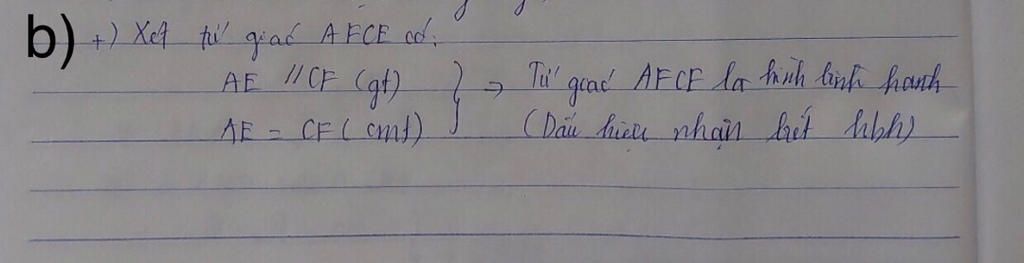 b) +) Xét tứ giác AFCE có:
AE // CF (gt) } → Tứ giác AFCE là hình bình hành
AE = CF (cmt) (Dấu hiệu nhận biết hbh)